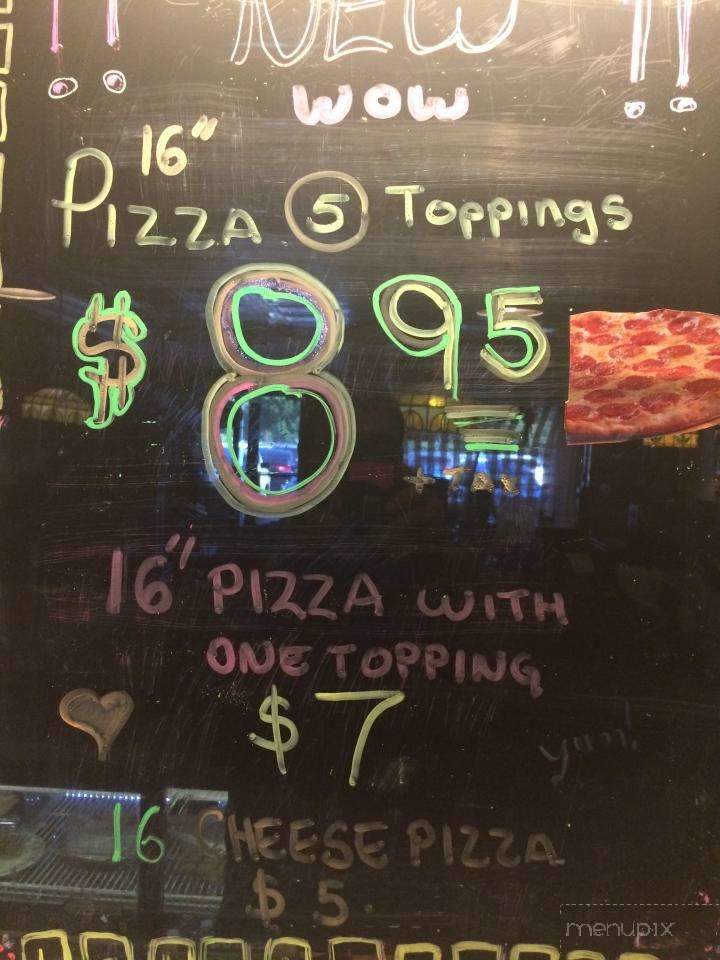 !! NEW !!
WOW
16"
PIZZA 5 Toppings
$8 95
+ TAX
16" PIZZA WITH
ONE TOPPING
$7
yum!
16 CHEESE PIZZA
$5
menupix